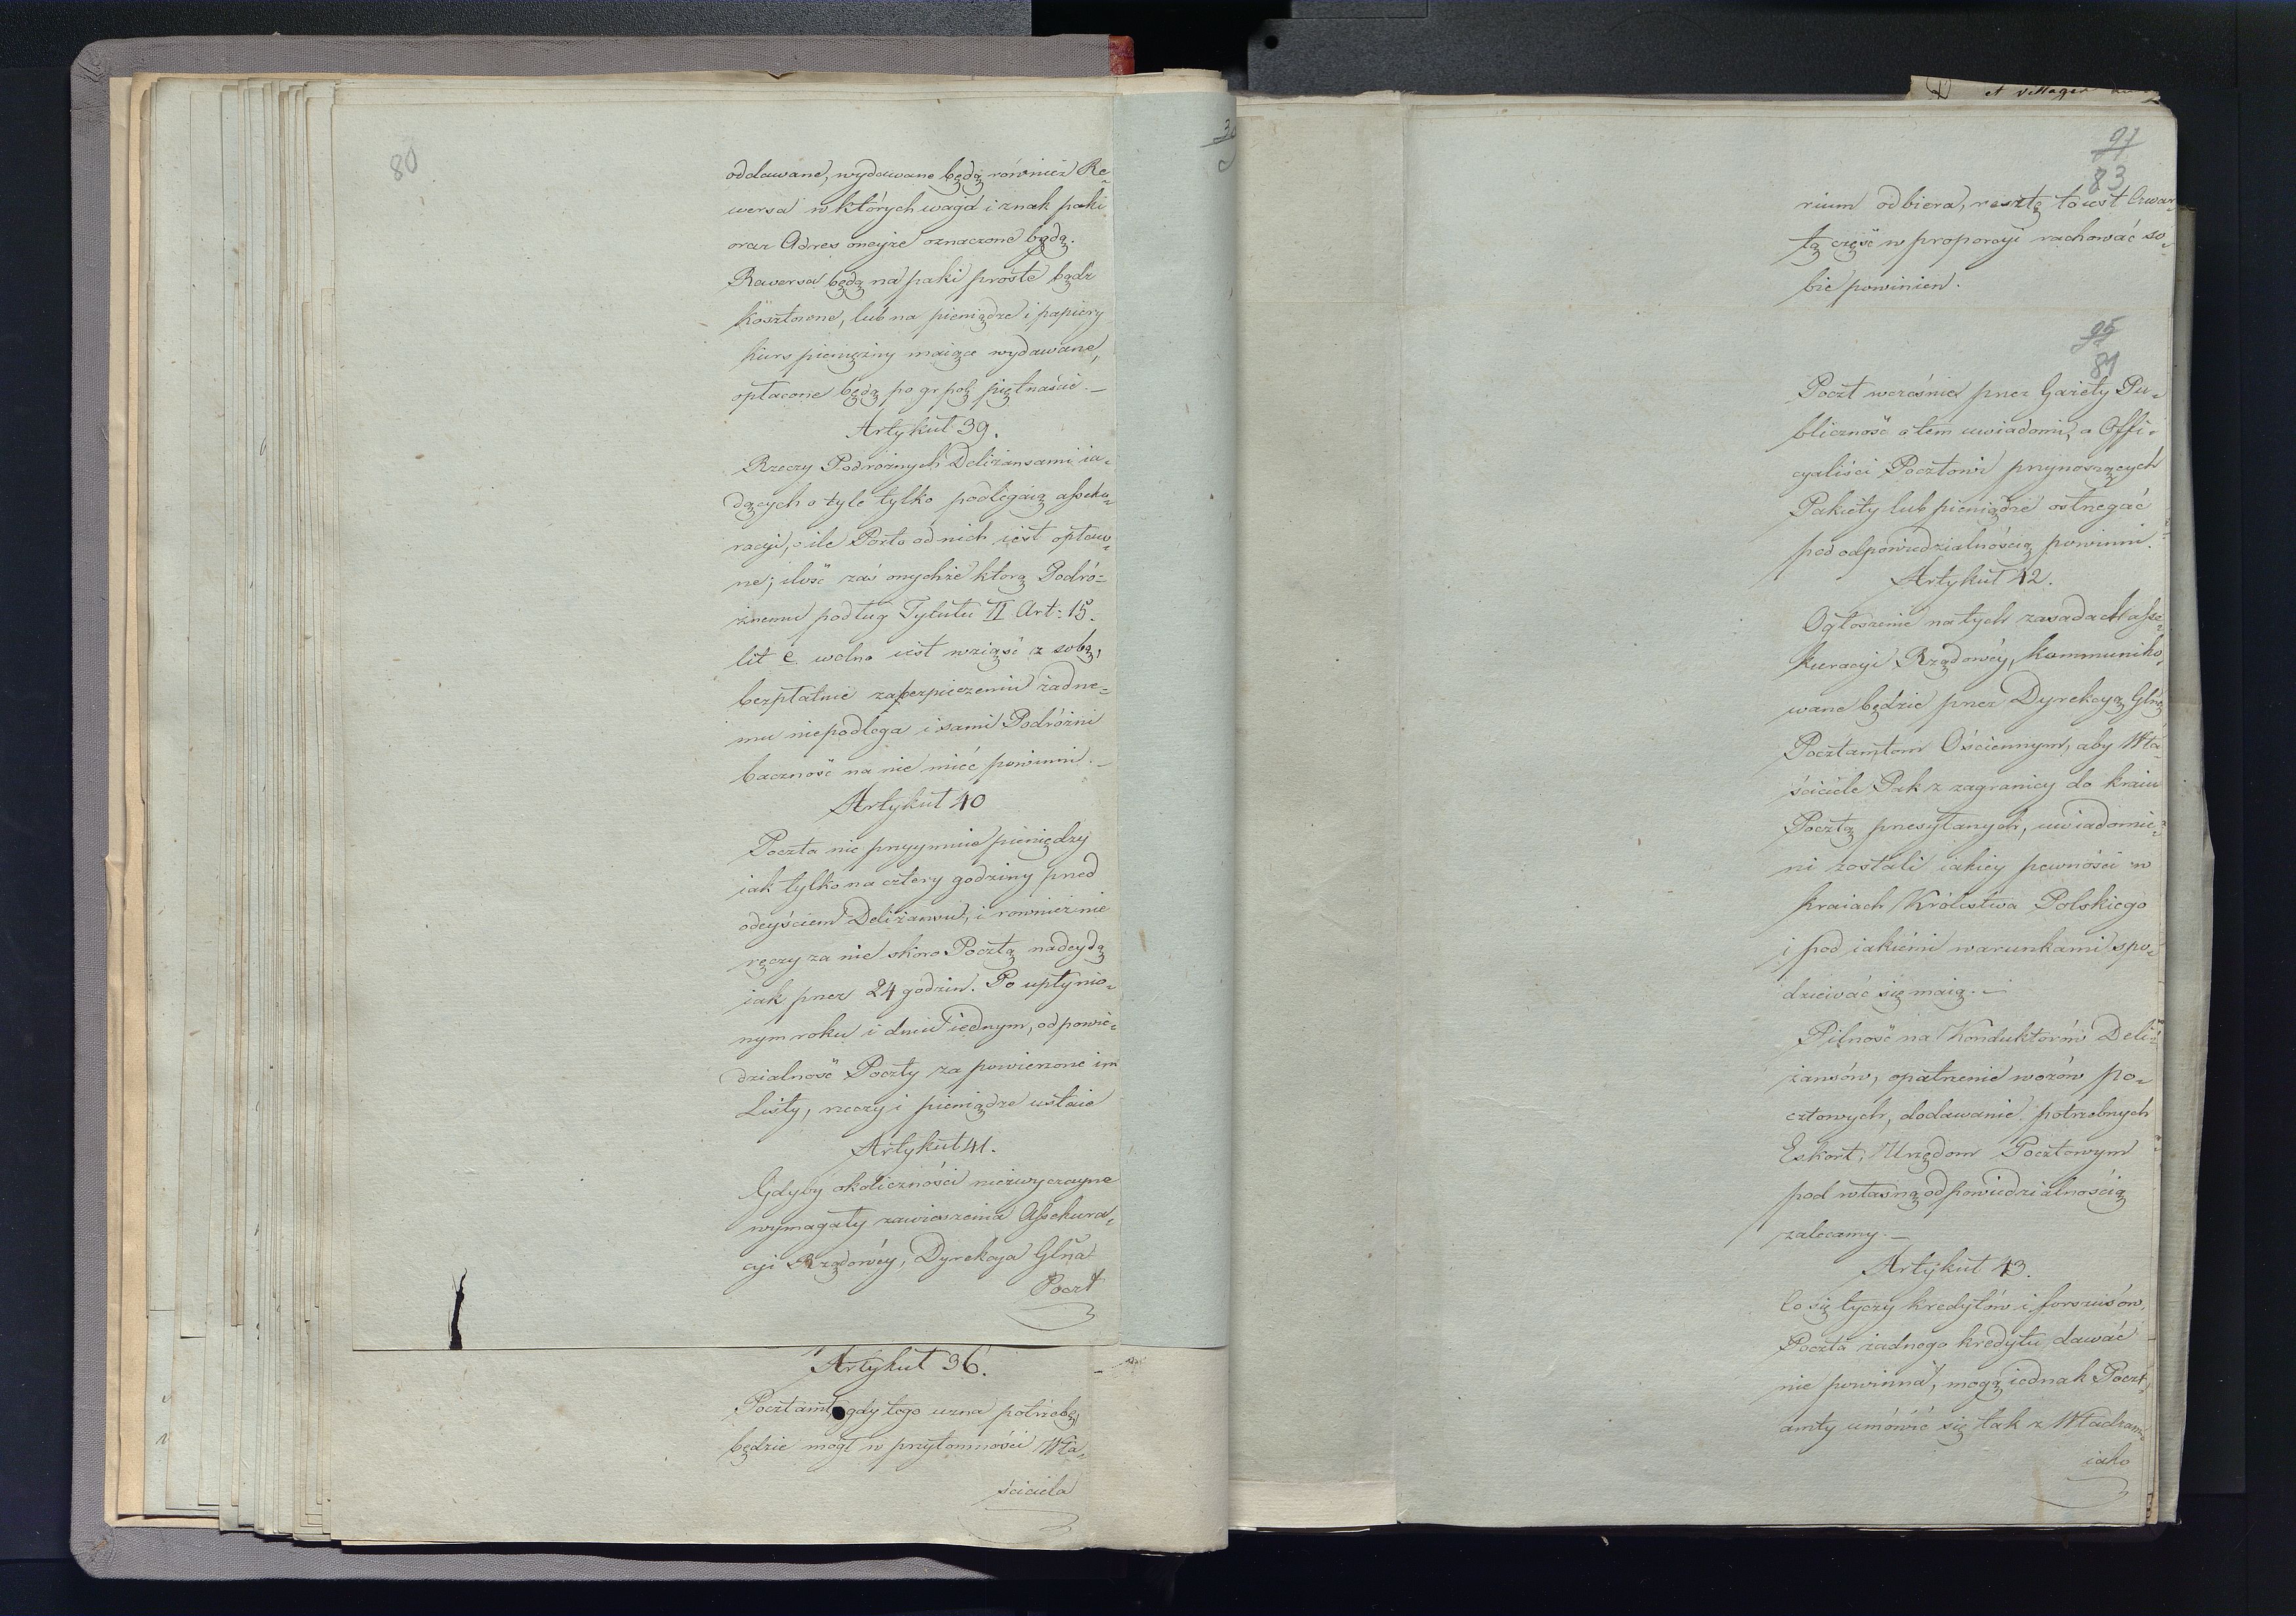 80
oddawane, wydawane będą również Re-
wersa w których waga i znak paki
oraz Adres oneyże oznaczone będą.
Rewersa będą na paki proste bądź
kosztowne, lub na pieniądze i papiery
kurs pieniężny maiące wydawane,
opłacone będą po gr pol piętnaście. —
Artykuł 39.
Rzeczy Podróżnych Deliżansami ia-
dących o tyle tylko podlegaią assеku-
racyi, o ile Porto od nich iest opłaco-
ne; ilość zaś onychże którą Podró-
żnemu podług Tytułu II Art: 15.
lit e. wolno iest wziąść z sobą,
bezpłatnie zabezpieczeniu żadne-
mu niepodlega i sami Podróżni
baczność na nie mieć powinni. —
Artykuł 40
Poczta nie przyymuie pieniędzy
iak tylko na cztery godziny przed
odeyściem Deliżansu, i rownież nie
ręczy za nie skoro Pocztą nadeydą
iak przez 24 godzin. Po upłynio-
nym roku i dniu iednym, odpowie-
dzialność Poczty za powierzone im
Listy, rzeczy i pieniądze ustaie
Artykuł 41.
Gdyby okoliczności niezwyczayne
wymagały zawieszenia Assekura-
cyi Rządowéy, Dyrekcya Głna
Poczt
Artykuł 36.
Pocztamt gdy tego uzna potrzebę,
będzie mógł w przytomności Wła-
ściciela
91
83
rium odbiera, resztę to iest Czwar-
tą część w proporcyi rachować so-
bie powinien.
95
81
Poczt wcześnie przez Gazety Pu-
bliczność o tem uwiadomi, a Offi-
cyaliści Pocztowi przynoszących
Pakiety lub pieniądze ostrzegać
pod odpowiedzialnością powinni.
Artykuł 42.
Ogłoszenie na tych zasadach asse-
kuracyi Rządowéy, kommuniko-
wane będzie przez Dyrekcyą Głną
Pocztamtom Ościennym, aby Wła-
ściciele Pak z zagranicy do kraiu
Pocztą przesyłanych, uwiadomie-
ni zostali iakiey pewności w
kraiach Królestwa Polskiego
i pod iakiemi warunkami spo-
dziewać się maią. —
Pilność na Konduktorów Deli-
żansów, opatrzenie wozów po-
cztowych, dodawanie potrzebnych
Eskort, Urzędom Pocztowym
pod własną odpowiedzialnością
zalecamy. —
Artykuł 43.
Co się tyczy kredytów i forszusów,
Poczta żadnego kredytu dawać
nie powinna, mogą iednak Poczt-
amty umówić się tak z Władzami
iako